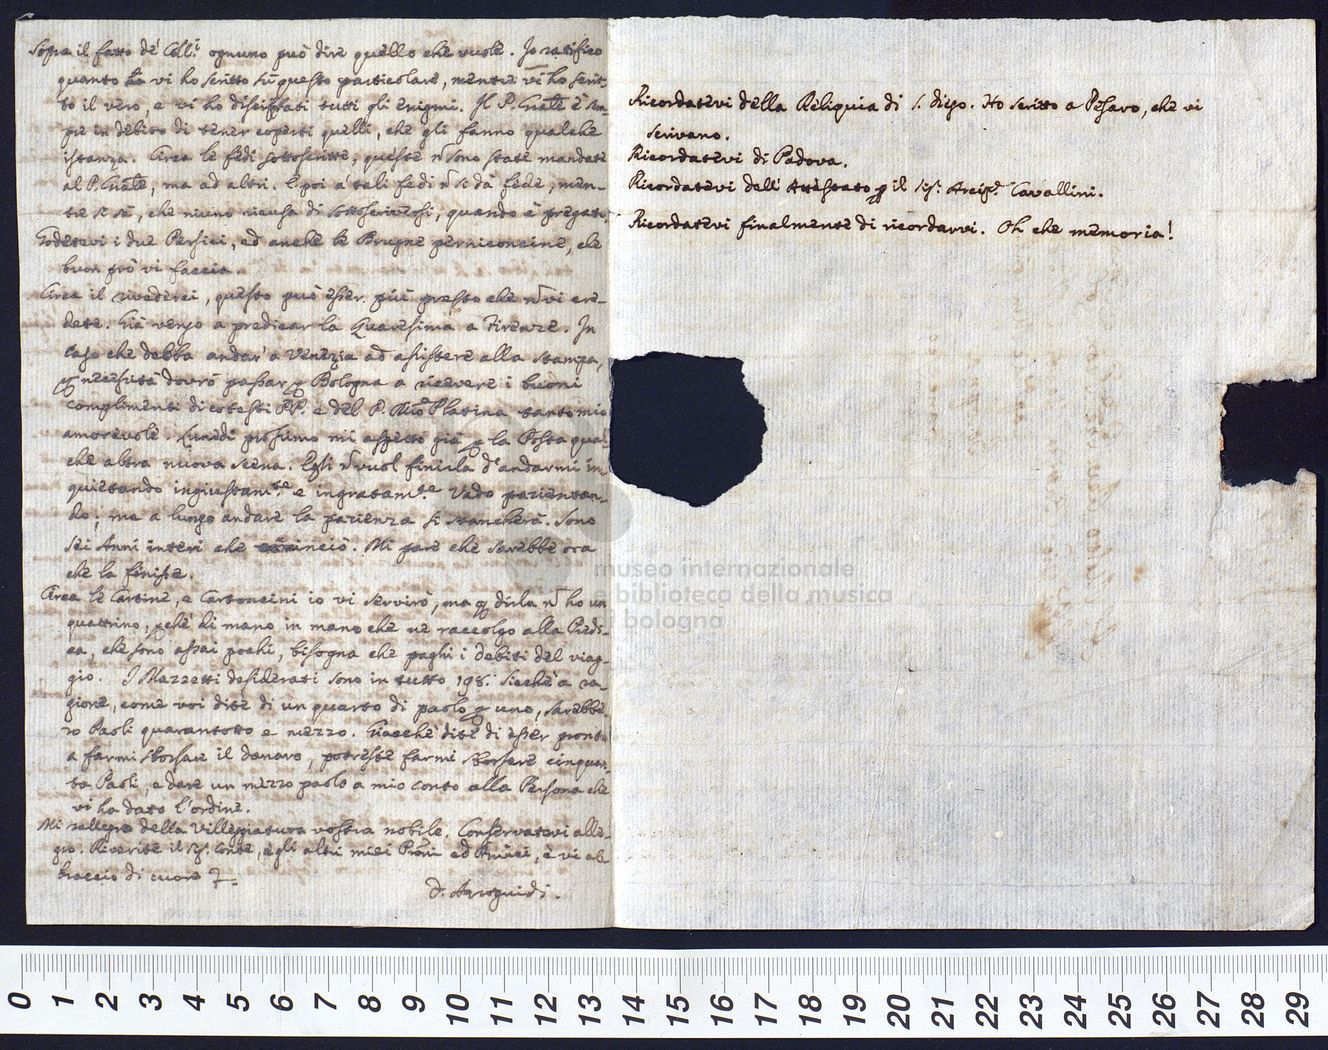 Sopra il fatto de' Coll.i ognuno può dire quello che vuole. Io ratifico
quanto vi ho scritto sù questo particolare, mentre vi ho scrit-
to il vero, e vi ho discifrati tutti gli enigmi. Il P. Gñale è sem-
pre in debito di tener coperti quelli, che gli fanno qualche
istanza. Circa le fedi sottoscritte, queste ñ sono state mandate
al P. Gñale, ma ad altri. E poi a' tali fedi ñ si dà fede, men-
tre si sà, che niuno ricusa di sottoscriversi, quando è pregato.
Godetevi i due Persici, ed anche le Brugne perniconcine, che
buon prò vi faccia.
Circa il rivederci, questo può esser più presto che ñ vi cre-
dete. Già vengo a predicar la Quaresima a Firenze. In
caso che debba andar' a Venezia ad assistere alla stampa,
p necessità dovrò passar p Bologna a ricevere i buoni
complimenti di cotesti PP. e del P. Mro Platina tanto mio
amorevole. Lunedì prossimo mi aspetto già p la Posta qual-
che altra nuova scena. Egli ñ vuol finirla d'andarmi in-
quietando ingiustam.te e ingratam.te Vado pazientan-
do; ma a lungo andare la pazienza si stancherà. Sono
sei Anni interi che cominciò. Mi pare che sarebbe ora
che la finisse.
Circa le Cartine, e Cartoncini io vi servirò, ma p dirla ñ ho un
quattrino, pchè di mano in mano che ne raccolgo alla Predi-
ca, che sono assai pochi, bisogna che paghi i debiti del viag-
gio. I Mazzetti desiderati sono in tutto 198. Sicchè a ra-
gione, come voi dite di un quarto di paolo p uno, sarebbe-
ro Paoli quarantotto e mezzo. Giacchè dite di esser pronto
a farmi sborsare il danaro, potreste farmi sborsare cinquan-
ta Paoli, e dare un mezzo paolo a mio conto alla Persona che
vi ha dato l'ordine.
Mi rallegro della Villeggiatura vostra nobile. Conservatevi alle-
gro. Riverite il Sig. Conte, e gli altri miei Proñi ed Amici, e vi ab-
braccio di cuore
F. Arreguidi.
Ricordatevi della Reliquia di S. Diego. Ho scritto a Pesaro, che vi
scrivano.
Ricordatevi di Padova.
Ricordatevi dell' Attestato p il Sig. Arcip.e Cavallini.
Ricordatevi finalmente di ricordarvi. Oh che memoria!
museo internazionale
e biblioteca della musica
di bologna
0 1 2 3 4 5 6 7 8 9 10 11 12 13 14 15 16 17 18 19 20 21 22 23 24 25 26 27 28 29